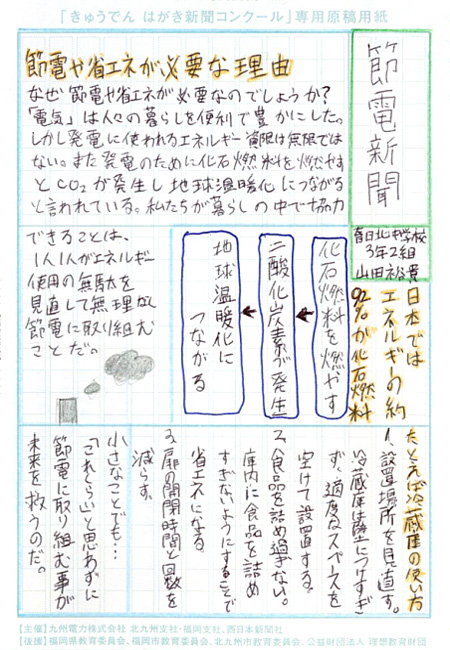 「きゅうでん はがき新聞コンクール」専用原稿用紙
節電新聞
春日北中学校
3年2組
山田裕貴
節電や省エネが必要な理由
なぜ節電や省エネが必要なのでしょうか?
「電気」は人々の暮らしを便利で豊かにした。
しかし発電に使われるエネルギー資源は無限では
ない。また発電のために化石燃料を燃やす
とCO₂が発生し地球温暖化につながる
と言われている。私たちが暮らしの中で協力
できることは、
1人1人がエネルギー
使用の無駄を
見直して無理なく
節電に取り組む
ことだ。
日本では
エネルギーの約
92%が化石燃料
化石燃料を燃やす
二酸化炭素が発生
地球温暖化に
つながる
たとえば冷蔵庫の使い方
1、設置場所を見直す。
冷蔵庫は壁につけすぎ
ず、適度なスペースを
空けて設置する。
2、食品を詰め過ぎない。
庫内に食品を詰め
すぎないようにすることで
省エネになる
3、扉の開閉時間と回数を
減らす。
小さなことでも…
「これくらい」と思わずに
節電に取り組む事が
未来を救うのだ。
【主催】九州電力株式会社 北九州支社・福岡支社、西日本新聞社
【後援】福岡県教育委員会、福岡市教育委員会、北九州市教育委員会、公益財団法人 理想教育財団